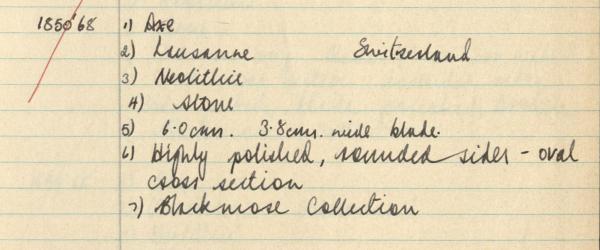 1850'68 1) Axe
2) Lausanne Switzerland
3) Neolithic
4) Stone
5) 6.0cms. 3.8cms. wide blade.
6) Highly polished, rounded sides - oval
cross section
7) Blackmose Collection